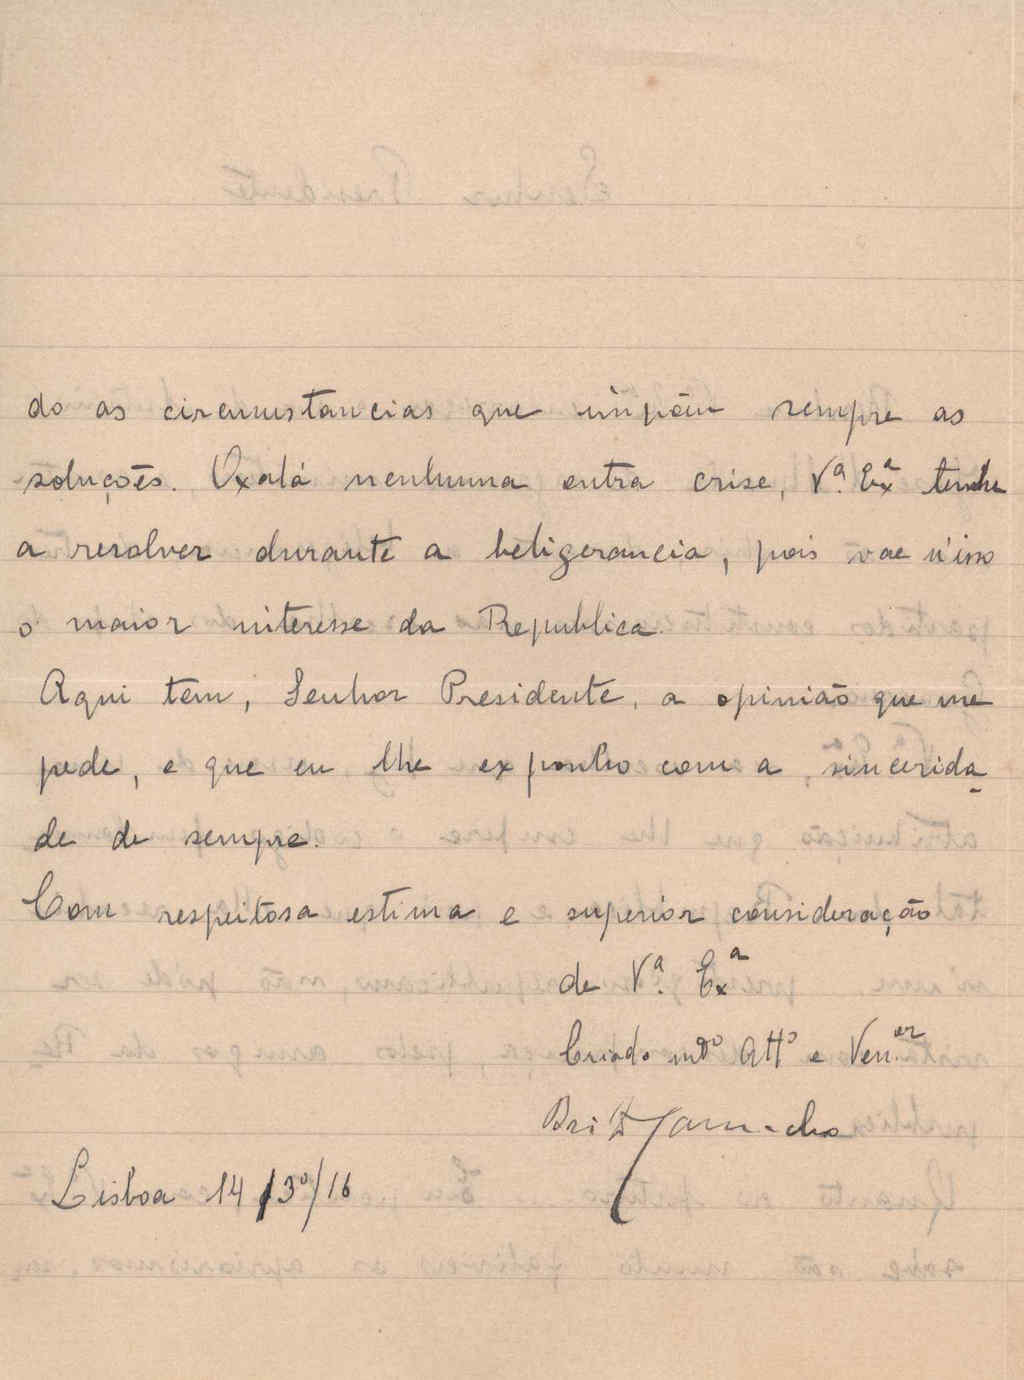 do as circumstancias que impõem sempre as
soluções. Oxalá nenhuma outra crise, V.ª Ex.ª tenha
a resolver durante a beligerancia, pois vae n'isso
o maior interesse da Republica.
Aqui tem, Senhor Presidente, a opinião que me
pede, e que eu lhe exponho com a sincerida-
de de sempre.
Com respeitosa estima e superior consideração
de V.ª Ex.ª
Criado mtº Attº e Ven.or
Brito Camacho
Lisboa 14/3º/16